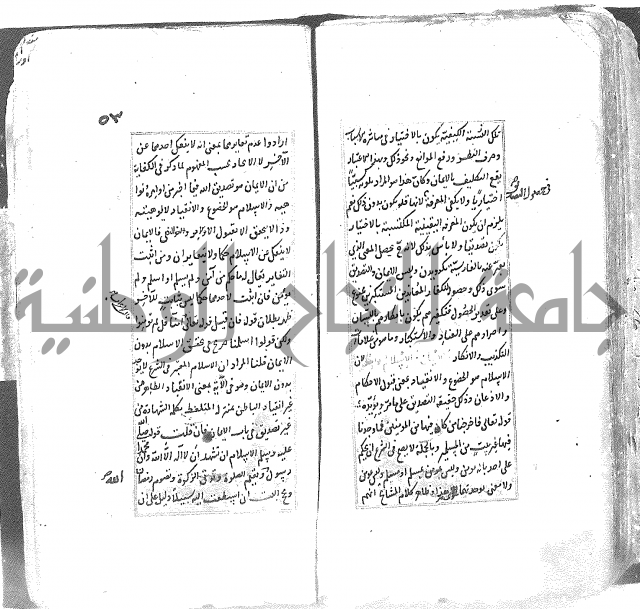 تلك النسبة الكيفية يكون بالاختيار في مباشرة الأسباب
وصرف النظر ورفع الموانع ونحو ذلك وبهذا الاعتبار
يقع التكليف بالايمان وكان هذا هو المراد بكونه كسبيا
اختياريا ولا يكفي المعرفة لانها قد يكون بدون ذلك نعم
يلزم ان يكون المعرفة اليقينية المكتسبة بالاختيار
تصديقا ولا باس بذلك لانه ح يحصل المعنى الذي
يعبر عنه بالفارسية بكرويدن وليس الايمان والتصديق
سوى ذلك وحصوله للكفار المعاندين المستكبرين ممنوع
وعلى تقدير الحصول فتكفيرهم يكون بانكارهم باللسان
واصرارهم على العناد والاستكبار وما هو من علامات
التكذيب والانكار الايمان والاسلام واحد لان
الاسلام هو الخضوع والانقياد بمعنى قبول الاحكام
والاذعان وذلك حقيقة التصديق على ما مر ويؤيده
قوله تعالى فاخرجنا من كان فيها من المؤمنين فما وجدنا
فيها غير بيت من المسلمين وبالجملة لا يصح في الشرع ان يحكم
على احد بانه مؤمن وليس بمسلم او مسلم وليس بمؤمن
ولا نعني بوحدتهما سوى هذا وظاهر كلام المشايخ انهم
في حصول التصديق
٥٣
ارادوا عدم تغايرهما بمعنى انه لا ينفك احدهما عن
الآخر لا الاتحاد بحسب المفهوم لما ذكر في الكفاية
من ان الايمان هو تصديق الله فيما اخبر من اوامره ونوا
هيه والاسلام هو الخضوع والانقياد لالوهيته
وذا لا يتحقق الا بقبول الامر والنهي فالايمان
لا ينفك عن الاسلام حكما فلا يتغايران ومن اثبت
التغاير يقال له ما حكم من آمن ولم يسلم او اسلم ولم
يؤمن فان اثبت لاحدهما حكما ليس بثابت للآخر
ظهر بطلان قوله فان قيل قوله تعالى قالت الاعراب آمنا قل لم تؤمنوا
ولكن قولوا اسلمنا صريح في تحقق الاسلام بدون
الايمان قلنا المراد ان الاسلام المعتبر في الشرع لا يوجد
بدون الايمان وهو في الآية بمعنى الانقياد الظاهر من
غير انقياد الباطن بمنزلة المتلفظ بكلمة الشهادة من
غير تصديق في باب الايمان فان قلت قوله صلى الله
عليه وسلم الاسلام ان تشهد ان لا اله الا الله وان محمدا
رسول الله وتقيم الصلوة وتؤتي الزكوة وتصوم رمضان
وتحج البيت ان استطعت اليه سبيلا دليل على ان
الله
جامعة النجاح الوطنية